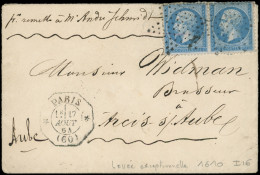 pr remettre à Mr André Schmidt
Monsieur Widman
Brasseur
à
Arcis s/Aube
Aube
PARIS
AOUT
(60)
Levée exceptionnelle 1610 I16